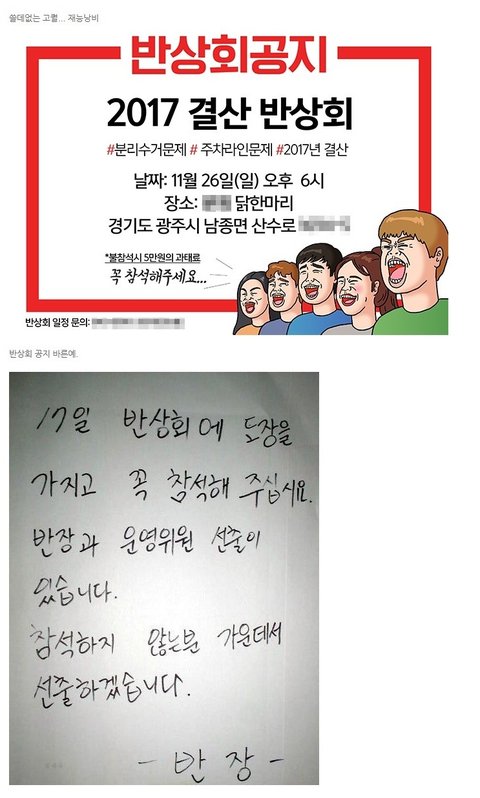 쓸데없는 고퀄... 재능낭비
반상회공지
2017 결산 반상회
#분리수거문제 # 주차라인문제 #2017년 결산
날짜: 11월 26일(일) 오후 6시
장소: 닭한마리
경기도 광주시 남종면 산수로
*불참석시 5만원의 과태료
꼭 참석해주세요...
반상회 일정 문의:
반상회 공지 바른예.
17일 반상회에 도장을
가지고 꼭 참석해 주십시요.
반장과 운영위원 선출이
있습니다.
참석하지 않는분 가운데서
선출하겠습니다.
- 반 장 -